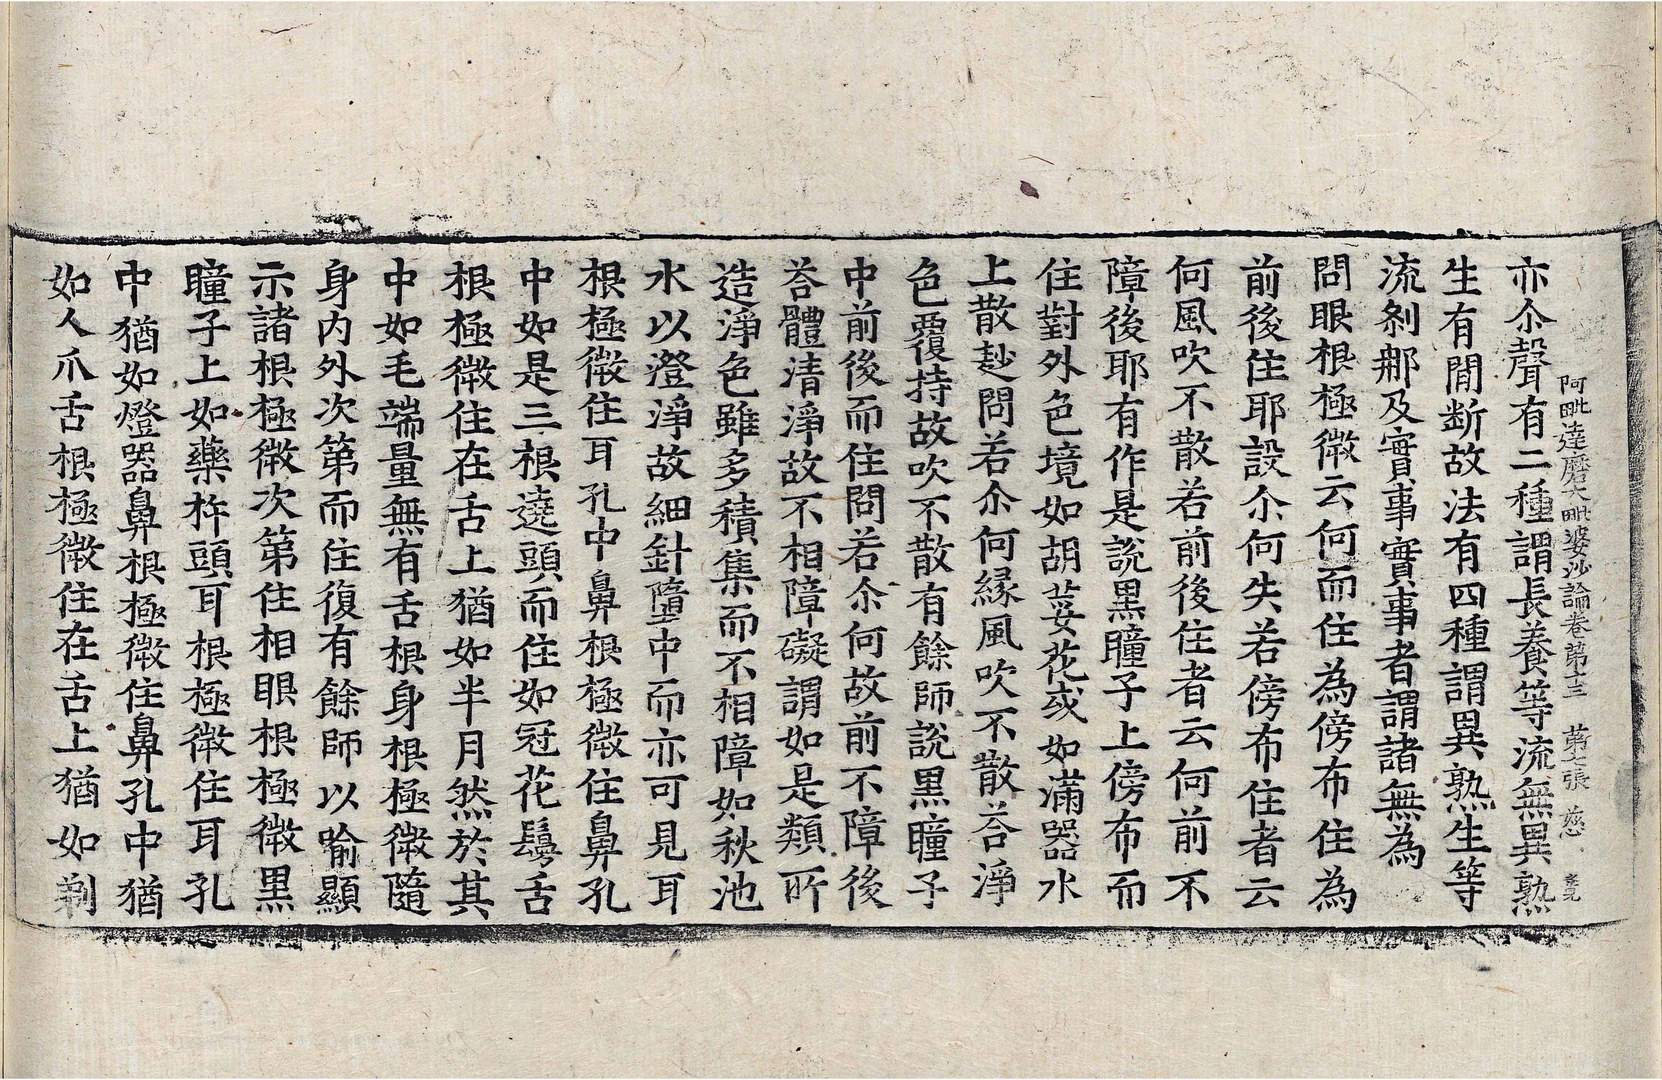 阿毗達磨大毗婆沙論卷第十三　第七張　慈
亦尒聲有二種謂長養等流無異熟
生有閒斷故法有四種謂異熟生等
流剎那及實事實事者謂諸無為
問眼根極微云何而住為傍布住為
前後住耶設尒何失若傍布住者云
何風吹不散若前後住者云何前不
障後耶有作是說黑瞳子上傍布而
住對外色境如胡荽花或如滿器水
上散麨問若尒何緣風吹不散荅淨
色覆持故吹不散有餘師說黑瞳子
中前後而住問若尒何故前不障後
荅體清淨故不相障礙謂如是類所
造淨色雖多積集而不相障如秋池
水以澄淨故細針墮中而亦可見耳
根極微住耳孔中鼻根極微住鼻孔
中如是三根遶頭而住如冠花鬘舌
根極微住在舌上猶如半月然於其
中如毛端量無有舌根身根極微隨
身內外次第而住復有餘師以喻顯
示諸根極微次第住相眼根極微黑
瞳子上如藥杵頭耳根極微住耳孔
中猶如燈器鼻根極微住鼻孔中猶
如人爪舌根極微住在舌上猶如剃